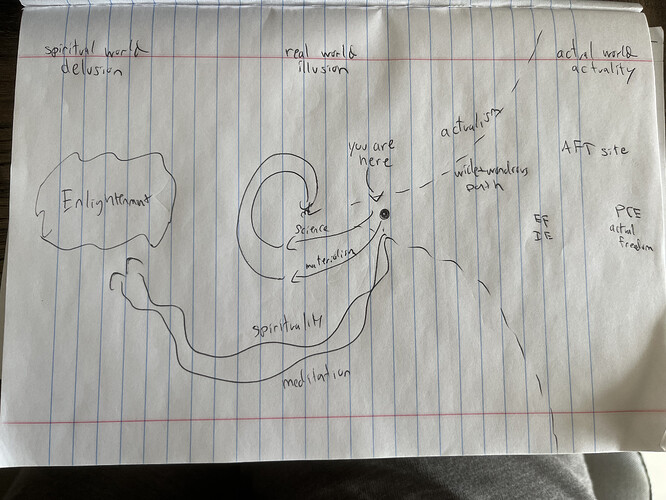 spiritual world
delusion
real world
illusion
actual world
actuality
you are
here
actualism
wide+wondrous
path
AFT site
Enlightenment
science
materialism
EF
IE
PCE
actual
freedom
spirituality
meditation